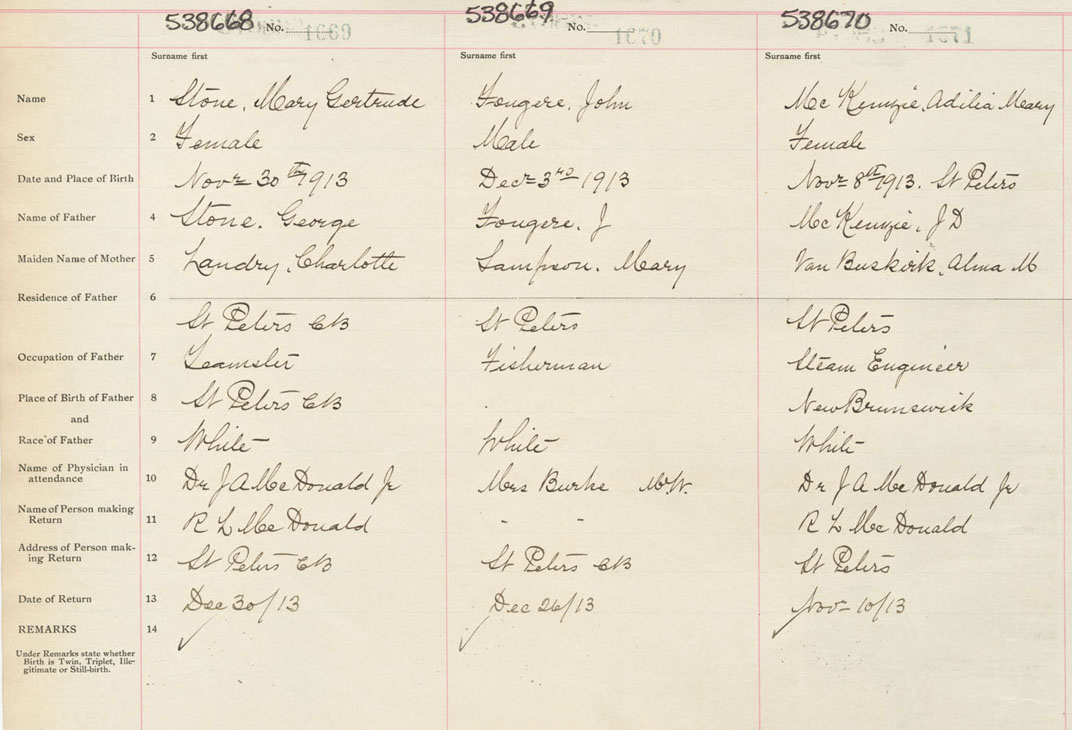 538668 No. 1669 538669 No. 1670 538670 No. 1671
Surname first Surname first Surname first
Name 1 Stone, Mary Gertrude Fougere, John Mc Kenzie, Adilia Mary
Sex 2 Female Male Female
Date and Place of Birth Novr 30th 1913 Decr 3rd 1913 Novr 8th 1913. St Peters
Name of Father 4 Stone. George Fougere, J Mc Kenzie, J D
Maiden Name of Mother 5 Landry, Charlotte Sampson. Mary Van Buskirk, Alma M
Residence of Father 6
St Peters CB St Peters St Peters
Occupation of Father 7 Teamster Fisherman Steam Engineer
Place of Birth of Father 8 St Peters CB New Brunswick
and
Race of Father 9 White White White
Name of Physician in
attendance 10 Dr J A Mc Donald Jr Mrs Burke M.W. Dr J A Mc Donald Jr
Name of Person making
Return 11 R L Mc Donald " " R L Mc Donald
Address of Person mak-
ing Return 12 St Peters CB St Peters CB St Peters
Date of Return 13 Dec 30/13 Dec 26/13 Nov 10/13
REMARKS 14
Under Remarks state whether
Birth is Twin, Triplet, Ille-
gitimate or Still-birth.